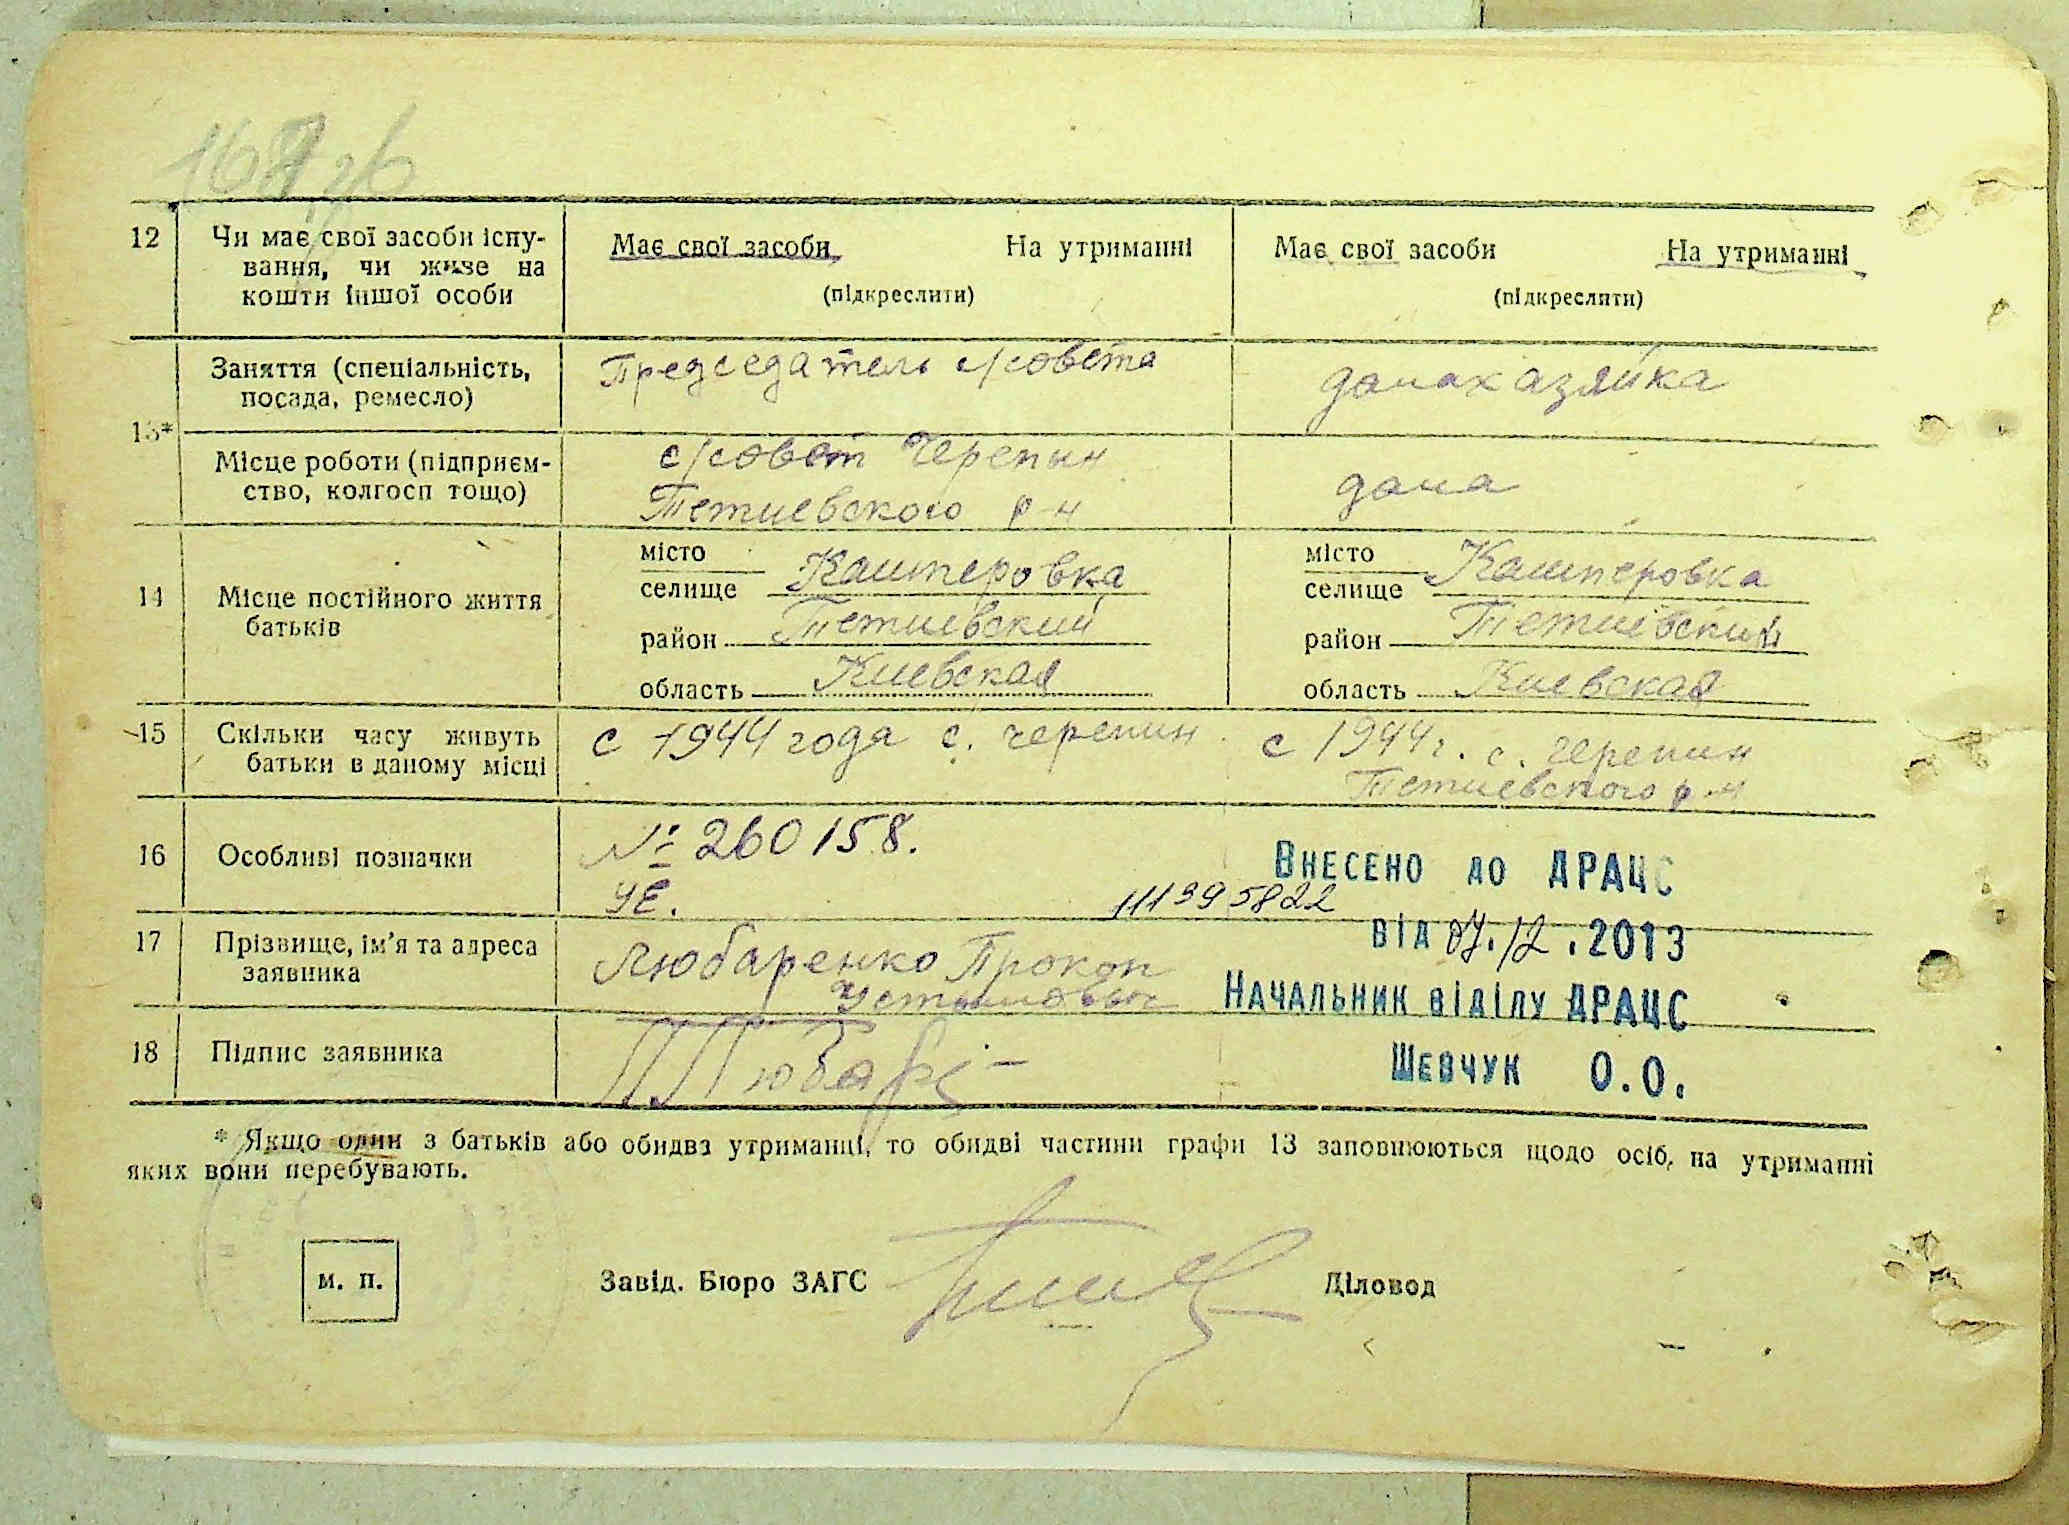 12
Чи має свої засоби існу-
вання, чи живе на
кошти іншої особи
Має свої засоби На утриманні
(підкреслити)
Має свої засоби На утриманні
(підкреслити)
13*
Заняття (спеціальність,
посада, ремесло)
Председатель с/совета
домахазяйка
Місце роботи (підприєм-
ство, колгосп тощо)
с/совет Черепын
Тетиевского р-н
дома
14
Місце постійного життя
батьків
місто
селище Кашперовка
район Тетиевский
область Киевская
місто
селище Кашперовка
район Тетиевский
область Киевская
15
Скільки часу живуть
батьки в даному місці
с 1944 года с. черепин
с 1944 г. с. Черепин
Тетиевского р-н
16
Особливі позначки
№ 260158.
УЕ.
111395822
Внесено до ДРАЦС
від 07.12.2013
Начальник відділу ДРАЦС
Шевчук О.О.
17
Прізвище, ім'я та адреса
заявника
Любаренко Прокоп
Устымовыч
18
Підпис заявника
* Якщо один з батьків або обидва утриманці, то обидві частини графи 13 заповнюються щодо осіб, на утриманні
яких вони перебувають.
м. п.
Завід. Бюро ЗАГС
Діловод